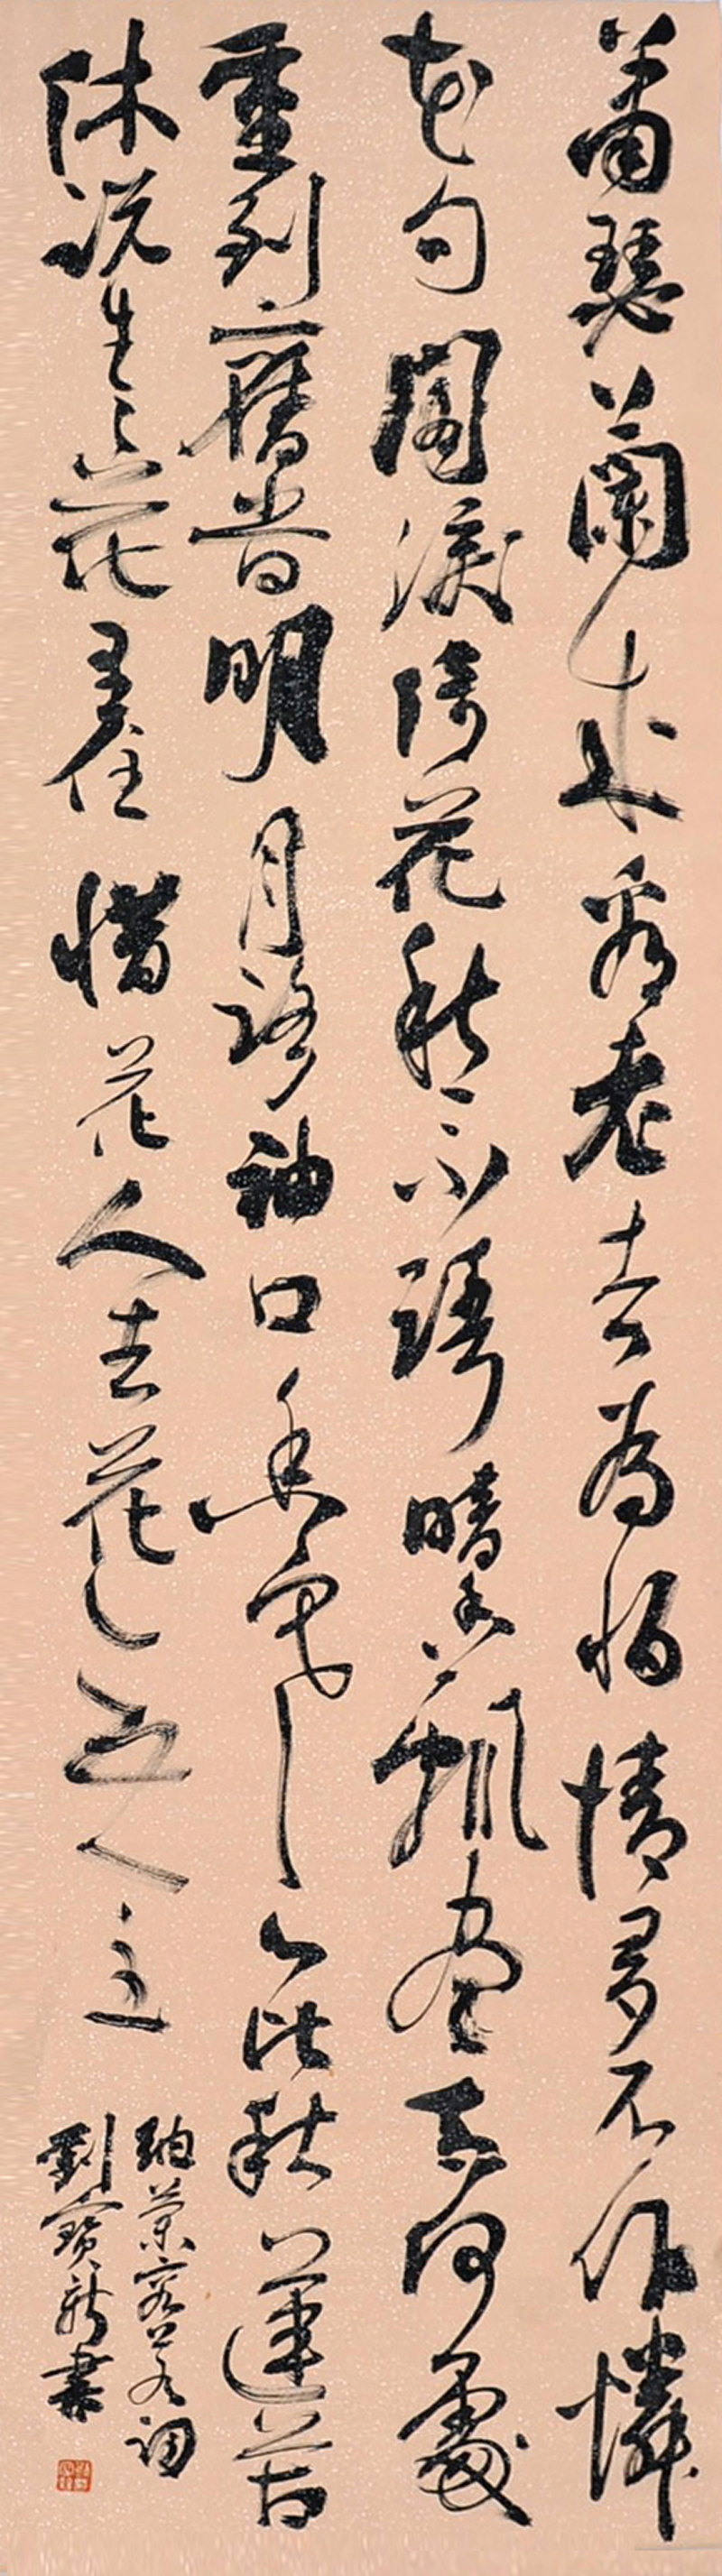 蕭瑟蘭成看老去為怕情多不作憐
花句閣淚倚花愁不語暗香飄盡知何處
重到舊旹明月路袖口香寒心比秋蓮苦
休說生生花里住惜花人去花無主
納蘭容若詞
劉寶新書